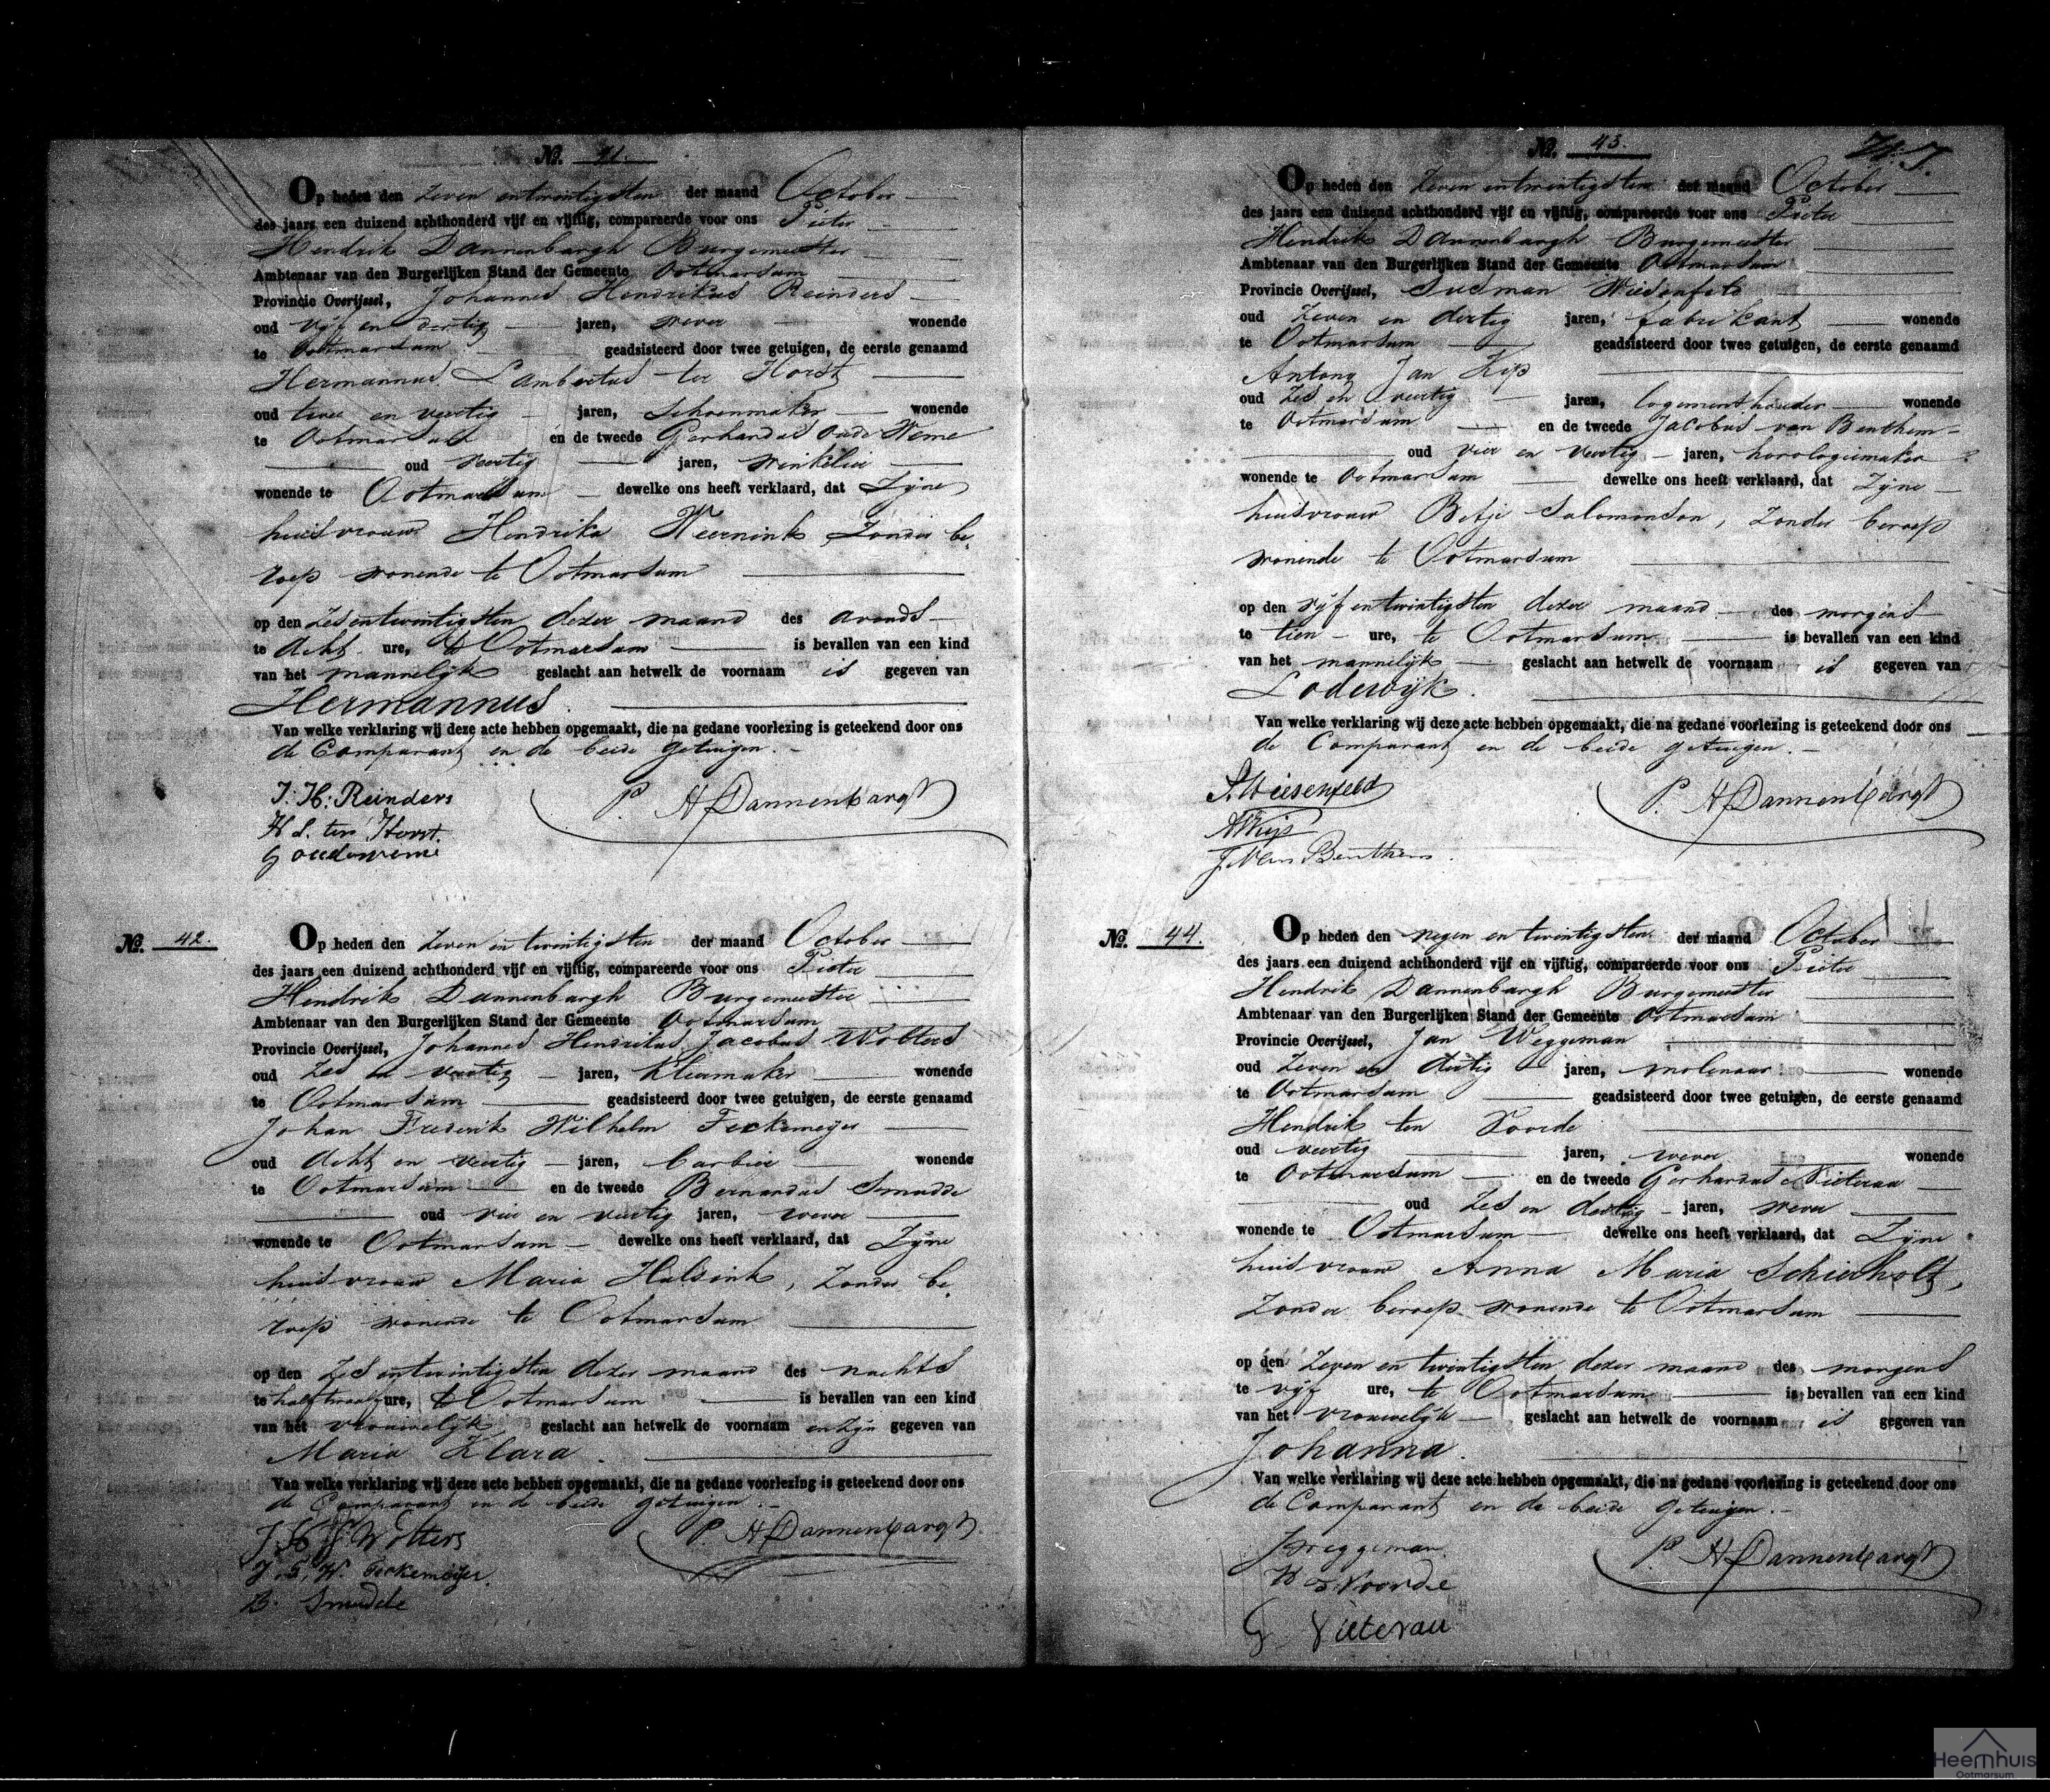 No. 41.
Op heden den zeven entwintigsten der maand October
des jaars een duizend achthonderd vijf en vijftig, compareerde voor ons Pieter
Hendrik Dannenbargh Burgemeester
Ambtenaar van den Burgerlijken Stand der Gemeente Ootmarsum
Provincie Overijssel, Johannes Hendrikus Reinders
oud vijf en dertig jaren, wever wonende
te Ootmarsum geadsisteerd door twee getuigen, de eerste genaamd
Hermannus Lambertus ter Horst
oud twee en veertig jaren, Schoenmaker wonende
te Ootmarsum en de tweede Gerhardus oude Weme
oud veertig jaren, winkelier
wonende te Ootmarsum dewelke ons heeft verklaard, dat Zijne
huisvrouw Hendrika Weernink, Zonder be,
roep wonende te Ootmarsum
op den zesentwintigsten dezer maand des avonds
te acht ure, te Ootmarsum is bevallen van een kind
van het mannelijk geslacht aan hetwelk de voornaam is gegeven van
Hermannus.
Van welke verklaring wij deze acte hebben opgemaakt, die na gedane voorlezing is geteekend door ons
de Comparant en de beide getuigen.
J: H: Reinders P. H Dannenbargh
H L. ter Horst.
G oudeweme
No. 42.
Op heden den zeven en twintigsten der maand October
des jaars een duizend achthonderd vijf en vijftig, compareerde voor ons Pieter
Hendrik Dannenbargh Burgemeester
Ambtenaar van den Burgerlijken Stand der Gemeente Ootmarsum
Provincie Overijssel, Johannes Hendrikus Jacobus Wolters
oud Zes en veertig jaren, Kleermaker wonende
te Ootmarsum geadsisteerd door twee getuigen, de eerste genaamd
Johan Frederik Wilhelm Feckemeijer
oud acht en veertig jaren, barbier wonende
te Ootmarsum en de tweede Bernardus Smudde
oud vier en veertig jaren, wever
wonende te Ootmarsum dewelke ons heeft verklaard, dat Zijne
huisvrouw Maria Hulsink, Zonder be,
roep wonende te Ootmarsum
op den Zes entwintigsten dezer maand des nachts
te half twaalf ure, te Ootmarsum is bevallen van een kind
van het vrouwelijk geslacht aan hetwelk de voornaam en zijn gegeven van
Maria Klara.
Van welke verklaring wij deze acte hebben opgemaakt, die na gedane voorlezing is geteekend door ons
de Comparant en de beide getuigen.
J H J Wolters P. H Dannenbargh
J. F. W. Feckemeijer.
B. Smudde
No. 43.
Op heden den Zeven entwintigsten der maand October
des jaars een duizend achthonderd vijf en vijftig, compareerde voor ons Pieter
Hendrik Dannenbargh Burgemeester
Ambtenaar van den Burgerlijken Stand der Gemeente Ootmarsum
Provincie Overijssel, Susman Wiesenfeld
oud Zeven en dertig jaren, fabrikant wonende
te Ootmarsum geadsisteerd door twee getuigen, de eerste genaamd
Antony Jan Kip
oud Zes en veertig jaren, logementhouder wonende
te Ootmarsum en de tweede Jacobus van Benthem
oud vier en veertig jaren, horologiemaker
wonende te Ootmarsum dewelke ons heeft verklaard, dat Zijne
huisvrouw Betje Salomonson, Zonder beroep
wonende te Ootmarsum
op den vijf entwintigsten dezer maand des morgens
te tien ure, te Ootmarsum is bevallen van een kind
van het mannelijk geslacht aan hetwelk de voornaam is gegeven van
Lodewijk.
Van welke verklaring wij deze acte hebben opgemaakt, die na gedane voorlezing is geteekend door ons
de Comparant en de beide getuigen.
S. Wiesenfeld P. H Dannenbargh
J. Van Benthem.
No. 44.
Op heden den negen en twintigsten der maand October
des jaars een duizend achthonderd vijf en vijftig, compareerde voor ons Pieter
Hendrik Dannenbargh Burgemeester
Ambtenaar van den Burgerlijken Stand der Gemeente Ootmarsum
Provincie Overijssel, Jan Weggeman
oud Zeven en dertig jaren, molenaar wonende
te Ootmarsum geadsisteerd door twee getuigen, de eerste genaamd
Hendrik ten Voorde
oud veertig jaren, wever wonende
te Ootmarsum en de tweede Gerhardus Vieterau
oud Zes en dertig jaren, wever
wonende te Ootmarsum dewelke ons heeft verklaard, dat Zijne
huisvrouw Anna Maria Schierholt,
Zonder beroep wonende te Ootmarsum
op den Zeven en twintigsten dezer maand des morgens
te vijf ure, te Ootmarsum is bevallen van een kind
van het vrouwelijk geslacht aan hetwelk de voornaam is gegeven van
Johanna.
Van welke verklaring wij deze acte hebben opgemaakt, die na gedane voorlezing is geteekend door ons
de Comparant en de beide getuigen.
J weggeman P. H Dannenbargh
H t Voorde
G Vieterau
Heemhuis
Ootmarsum